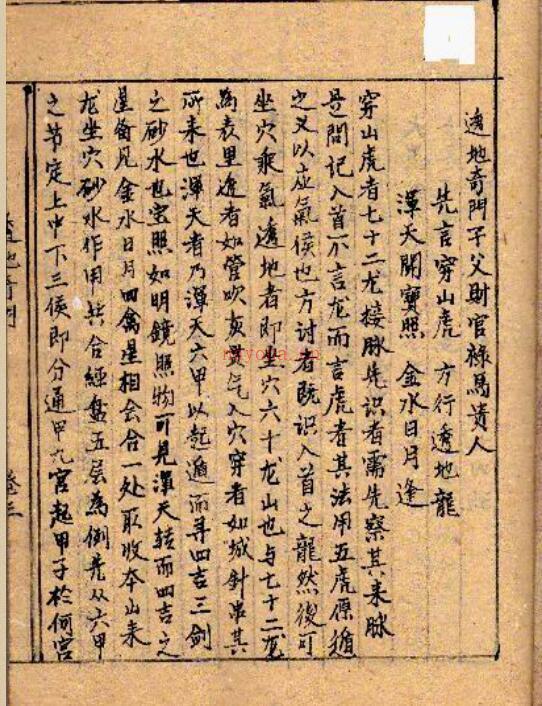 透地奇門子父財官祿馬貴人
先言穿山虎 方行透地龍
渾天開寶照 金水日月逢
穿山虎者七十二龙接脉先识者需先察其来脉
是問记入首不言龙而言虎者其法用五虎原遁
之又以应氣候也方讨者既识入首之龍然後可
坐穴乘氣透地者即坐穴六十龙山也与七十二龙
為表里透者如管吹灰貫气入穴穿者如城針串其
所来也渾天者乃渾天六甲以起遁而寻四吉三剑
之砂水也宝照如明鏡照物可見渾天转而四吉之
星备見金水日月四禽星相会合一处取收本山来
龙坐穴砂水作用共合經盤五层為例先从六甲
之节定上中下三候即分通甲九宮起甲子於何宮
透地奇門
卷三